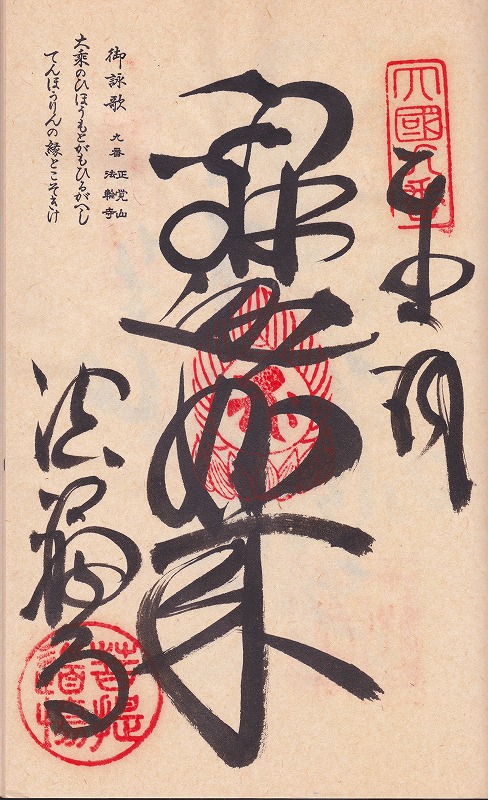 奉納
釋迦如来
御詠歌 九番 正覚山
法輪寺
大乗のひほうもとがもひるがへし
てんほうりんの縁とこそきけ
法輪寺
菩提
道場